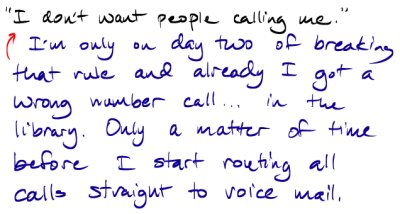 "I don't want people calling me."
I'm only on day two of breaking
that rule and already I got a
wrong number call... in the
library. Only a matter of time
before I start routing all
calls straight to voice mail.